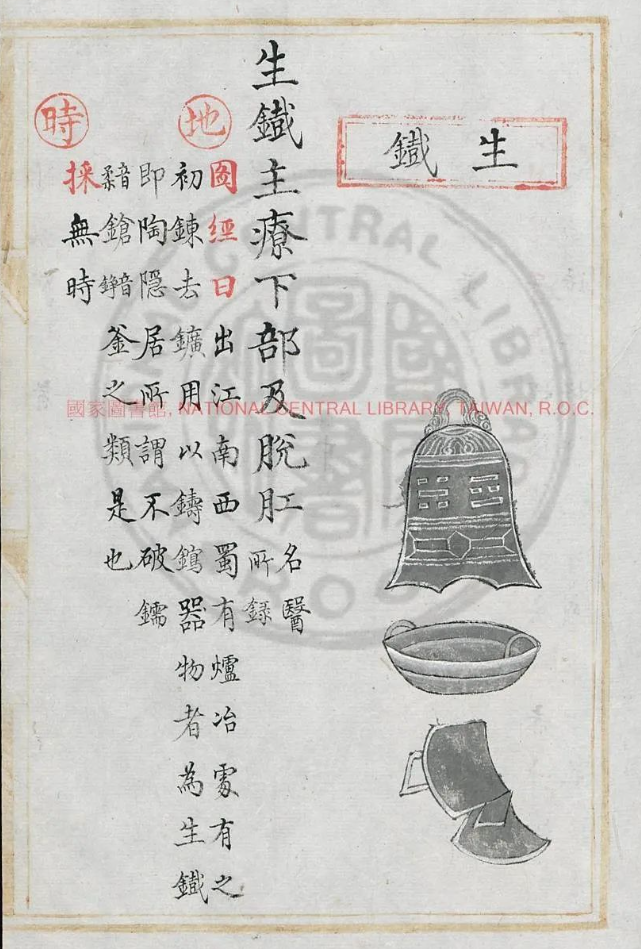 生鐵
生鐵主療下部及脫肛
名醫
所錄
地
圖經曰出江南西蜀有爐冶處有之
初鍊去鑛用以鑄器物者為生鐵
即陶隱居所謂不破鑐
鎗釜之類是也
時
採無時
國家圖書館, NATIONAL CENTRAL LIBRARY, TAIWAN, R.O.C.